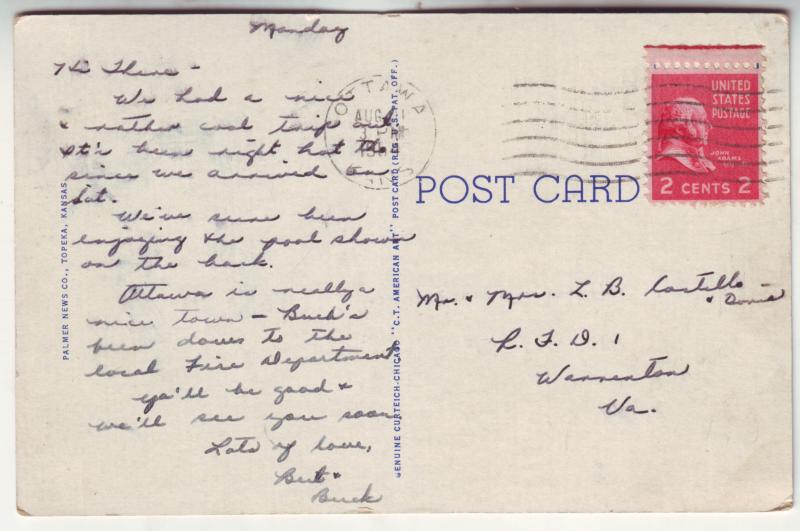 Monday
Hi There -
We had a nice
& rather cool trip out
It's been right hot tho
since we arrived on
Sat.
We've sure been
enjoying the pool shown
on the back.
Ottawa is really a
nice town - Buck's
been down to the
local Fire Department
ya'll be good &
we'll see you soon.
Lots of love,
&
Buck
PALMER NEWS CO., TOPEKA, KANSAS
GENUINE CURTEICH-CHICAGO "C.T. AMERICAN ART" POST CARD (REG. U.S. PAT. OFF.)
OTTAWA
AUG
PM
UNITED
STATES
POSTAGE
JOHN
ADAMS
2 CENTS 2
POST CARD
Mr. & Mrs. L. B. Costello
& Donnie
R. F. D. 1
Warrenton
Va.